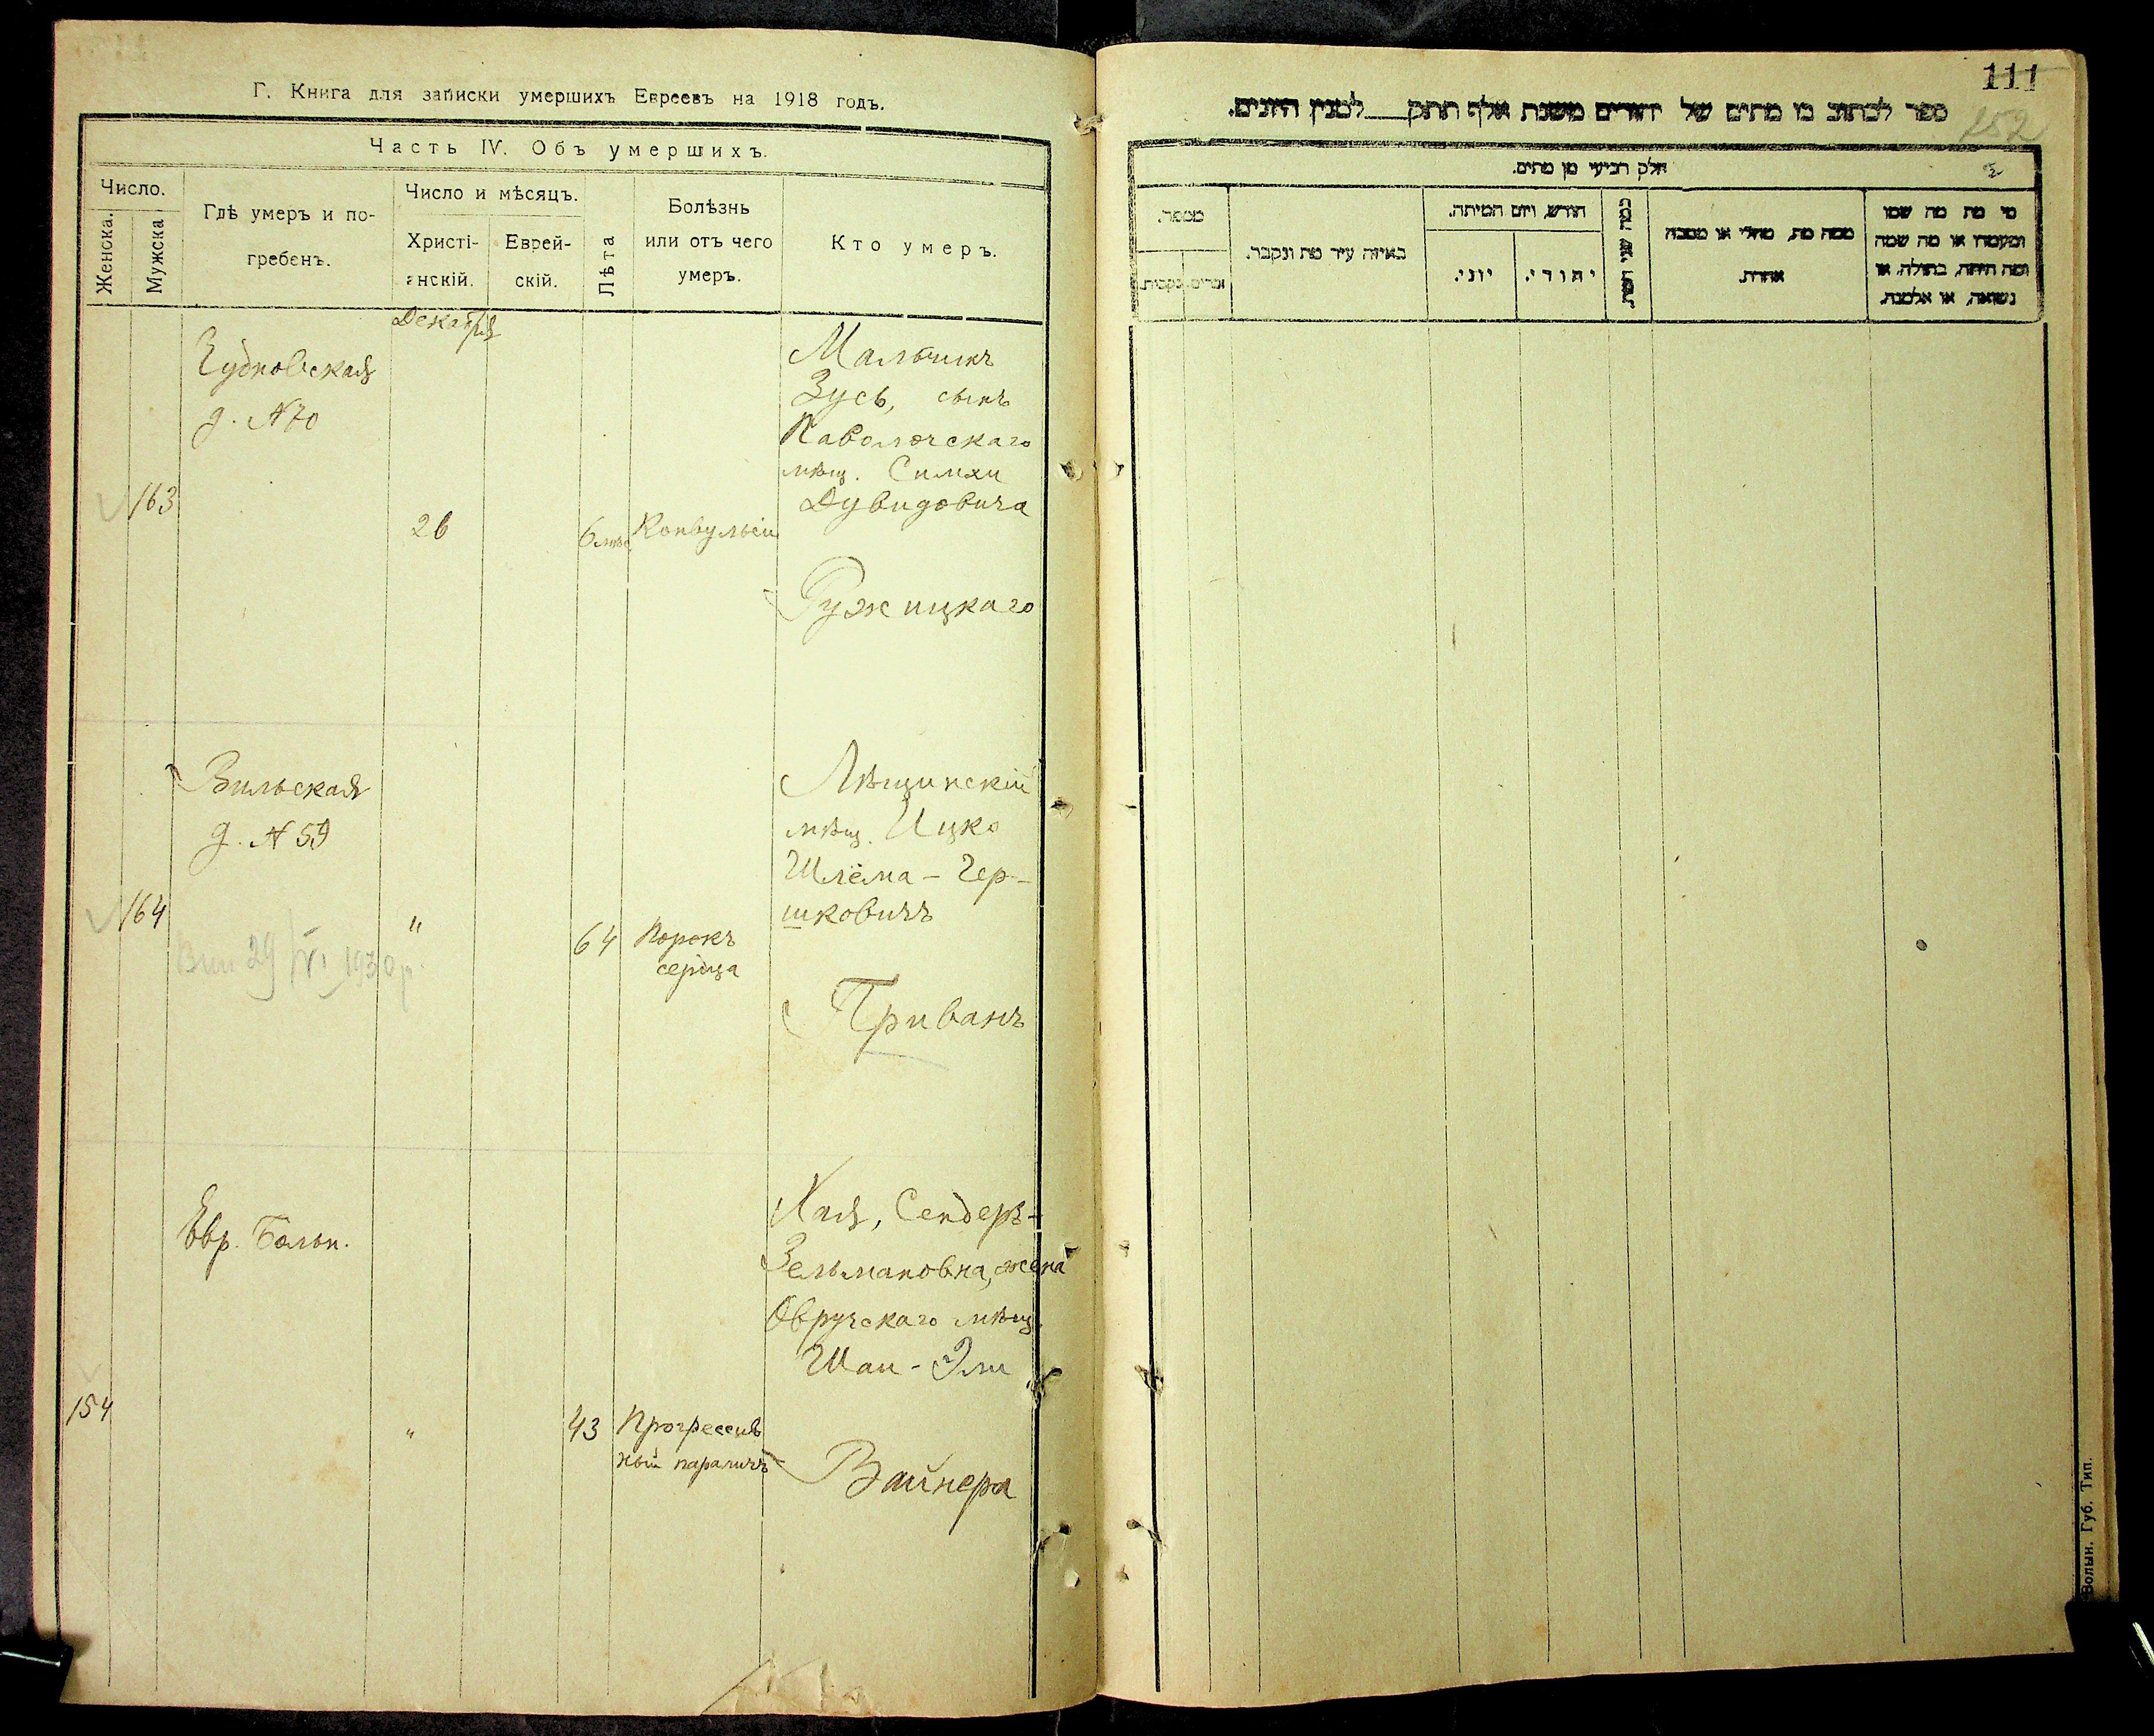 Г. Книга для записки умершихъ Евреевъ на 1918 годъ.
Часть IV. Объ умершихъ.
Число.
Женска.
Мужска
Гдѣ умеръ и по-
гребенъ.
Число и мѣсяцъ.
Христі-
анскій.
Еврей-
скій.
Лѣта
Болѣзнь
или отъ чего
умеръ.
Кто умеръ.
Декабря
163
Чудновская
д. №70
26
6 мѣс
Конвульсіи
Мальчикъ
Зусь, сынъ
Паволочскаго
мѣщ. Симхи
Дувидовича
Ружицкаго
164
Вильская
д. № 59
29 VI 1930 р.
"
64
Порокъ
сердца
Лѣщинскій
мѣщ. Ицко
Шлёма - Гер-
шковичъ
Приванъ
154
Евр. Больн.
"
43
Прогрессив
ный параличъ
Хая, Сендеръ-
Зельмановна, жена
Овручскаго мѣщ.
Шаи - Эли
Вайнера
111
152
ספר לכתוב בו מתים של יהודים משנת אלף תתק___למנין היונים.
חלק רביעי מן מתים.
מספר.
זכרים
נקבות.
באיזה עיר מת ונקבר.
חודש, ויום המיתה.
יוני.
יהודי.
כמה שני המת.
ממה מת, מחלי או מסבה
אחרת.
מי מת מה שמו
ומעמדו או מה שמה
ומה היתה, בתולה, או
נשואה, או אלמנה.
Волын. Губ. Тип.